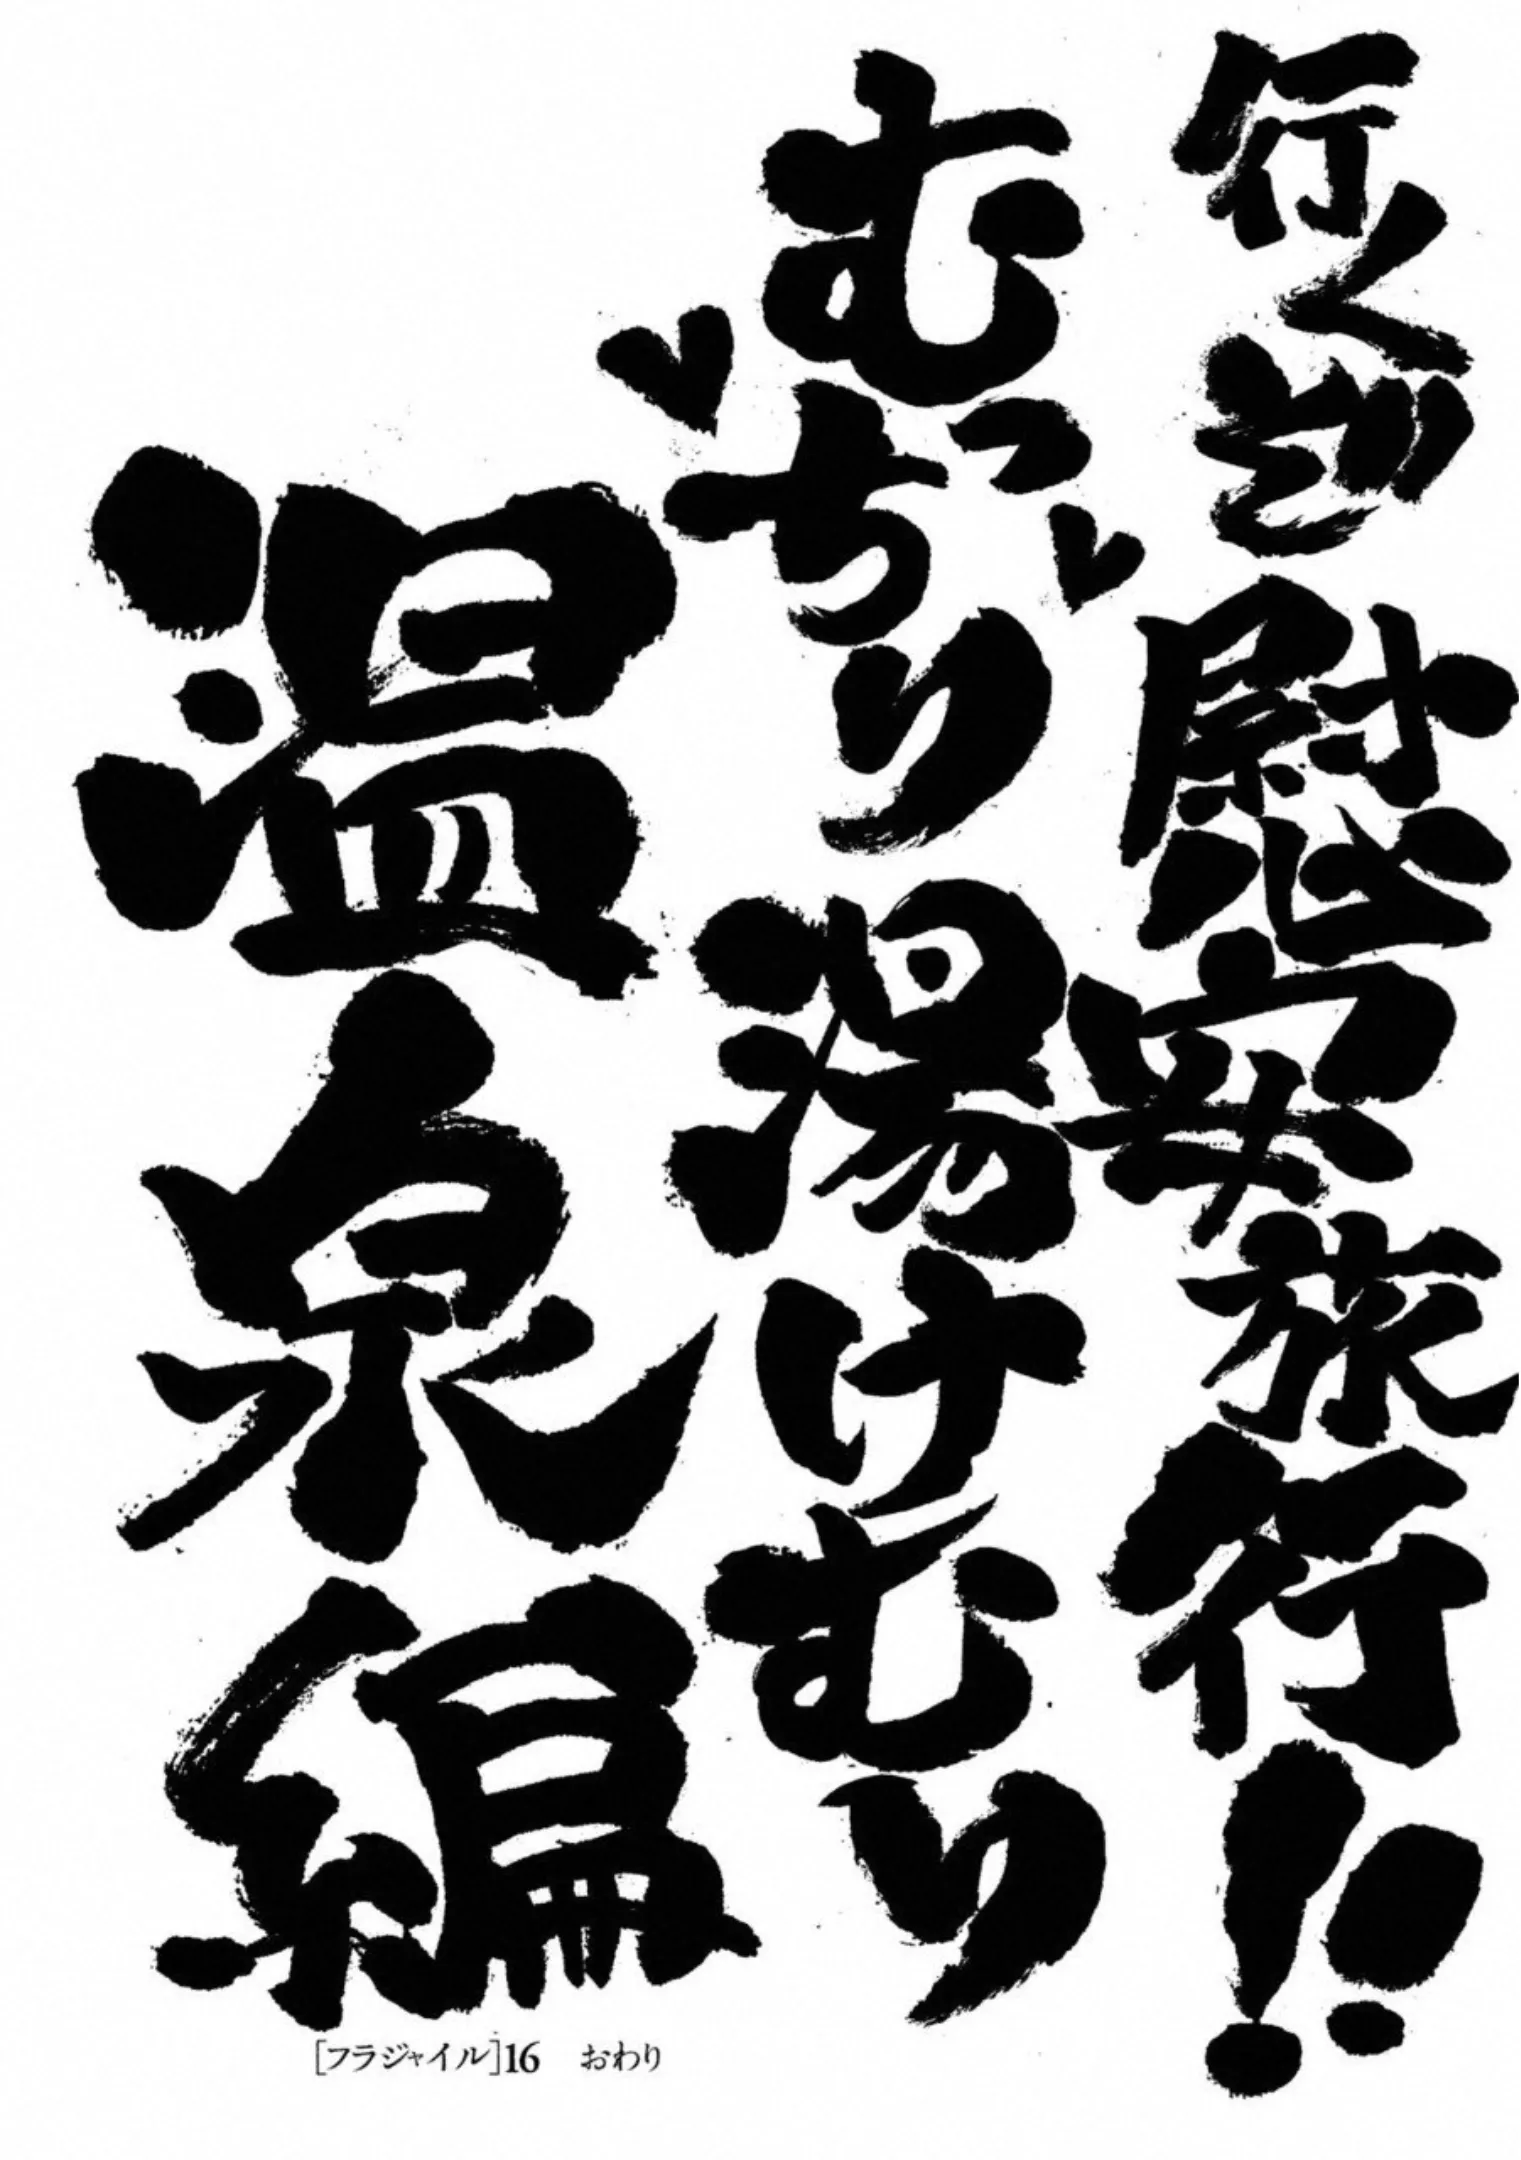 行くぞ慰安旅行!!
むっちり♥♥湯けむり
温泉編
[フラジャイル]16 おわり